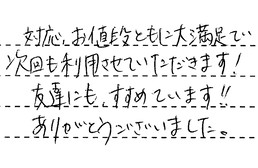 対応、お値段ともに大満足でい
次回も利用させていただきます!
友達にも、すすめています!!
ありがとうございました。